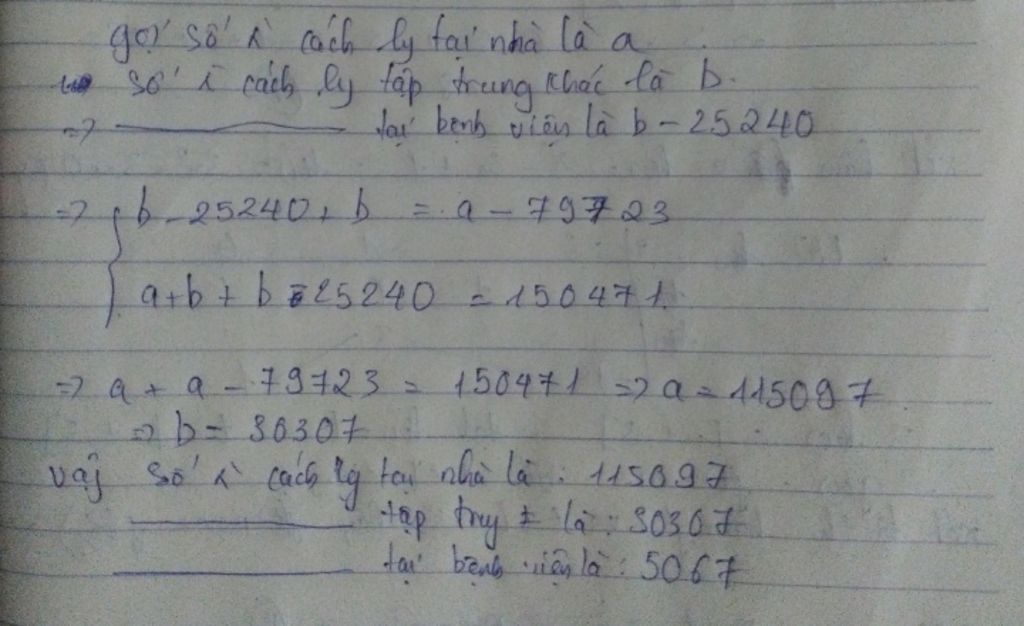 gọi số λ cách ly tại nhà là a
số λ cách ly tập trung khác là b.
=> ——— tại bệnh viện là b - 25240
=> { b - 25240 + b = a - 79723
a + b + b - 25240 = 150471
=> a + a - 79723 = 150471 => a = 115097
=> b = 30307
vậy số λ cách ly tại nhà là : 115097
——— tập trung ≠ là : 30307
——— tại bệnh viện là : 5067